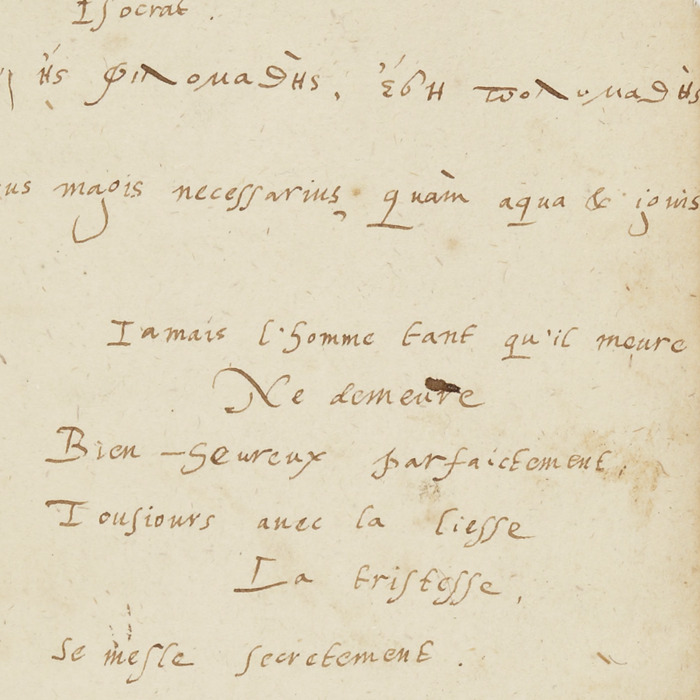 Isocrat.
ᾖς φιλομαθὴς, ἔσῃ πολυμαθὴς
us magis necessarius, quàm aqua & ignis
Iamais l'homme tant qu'il meure
Ne demeure
Bien-heureux parfaictement,
Tousiours auec la liesse
La tristesse,
Se mesle secretement.